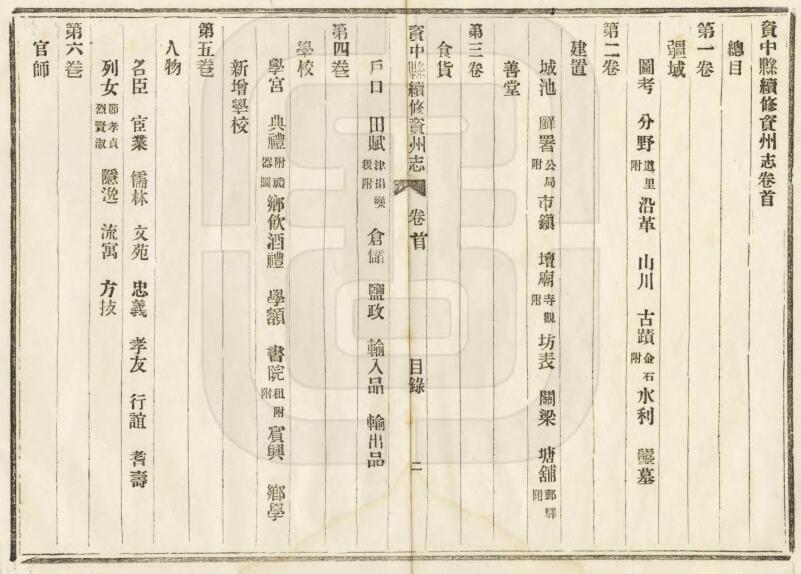 資中縣續修資州志卷首
總目
第一卷
疆域
圖考 分野道里附 沿革 山川 古蹟金石附 水利 塋墓
第二卷
建置
城池 廨署公局附 市鎮 壇廟寺觀附 坊表 關梁 塘舖郵驛附
善堂
第三卷
食貨
資中縣續修資州志 卷首 目錄 二
戶口 田賦津捐雜稅附 倉儲 鹽政 輸入品 輸出品
第四卷
學校
學宮 典禮附禮器圖 鄉飲酒禮 學額 書院租附附 賓興 鄉學
新增學校
第五卷
人物
名臣 宦業 儒林 文苑 忠義 孝友 行誼 耆壽
列女節孝貞烈賢淑 隱逸 流寓 方技
第六卷
官師